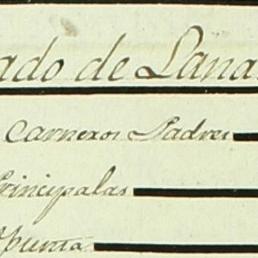 ado de Lana
Carneros Padres
Principalas
Apunta